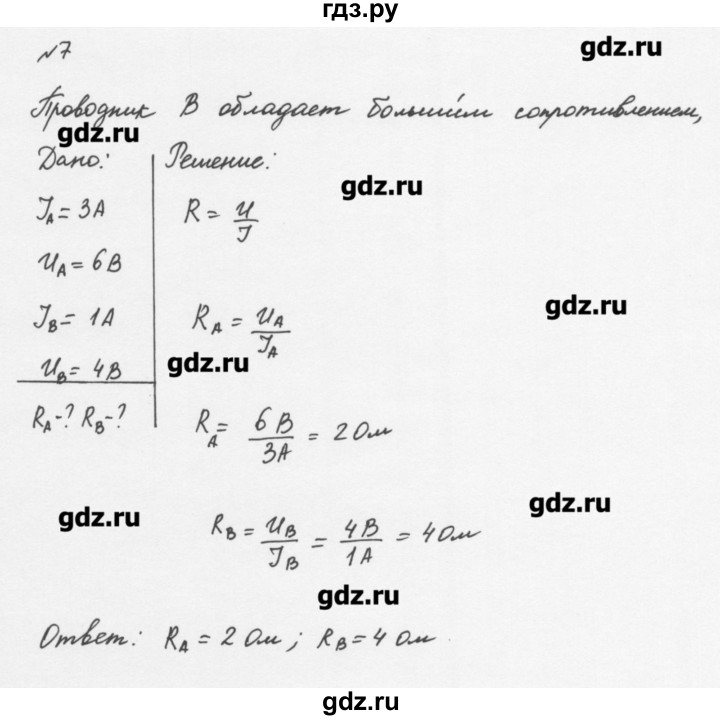 гдз.ру
№7
gdz.ru
Проводник В обладает большим сопротивлением,
gdz.ru
Дано: Решение:
gdz.ru
I_A = 3А R = U/I
U_A = 6В
gdz.ru
I_B = 1А R_A = U_A/I_A
U_B = 4В gdz.ru
R_A-? R_B-? R_A = 6В/3А = 2 Ом
gdz.ru gdz.ru
R_B = U_B/I_B = 4В/1А = 4 Ом
gdz.ru
Ответ: R_A = 2 Ом; R_B = 4 Ом
gdz.ru